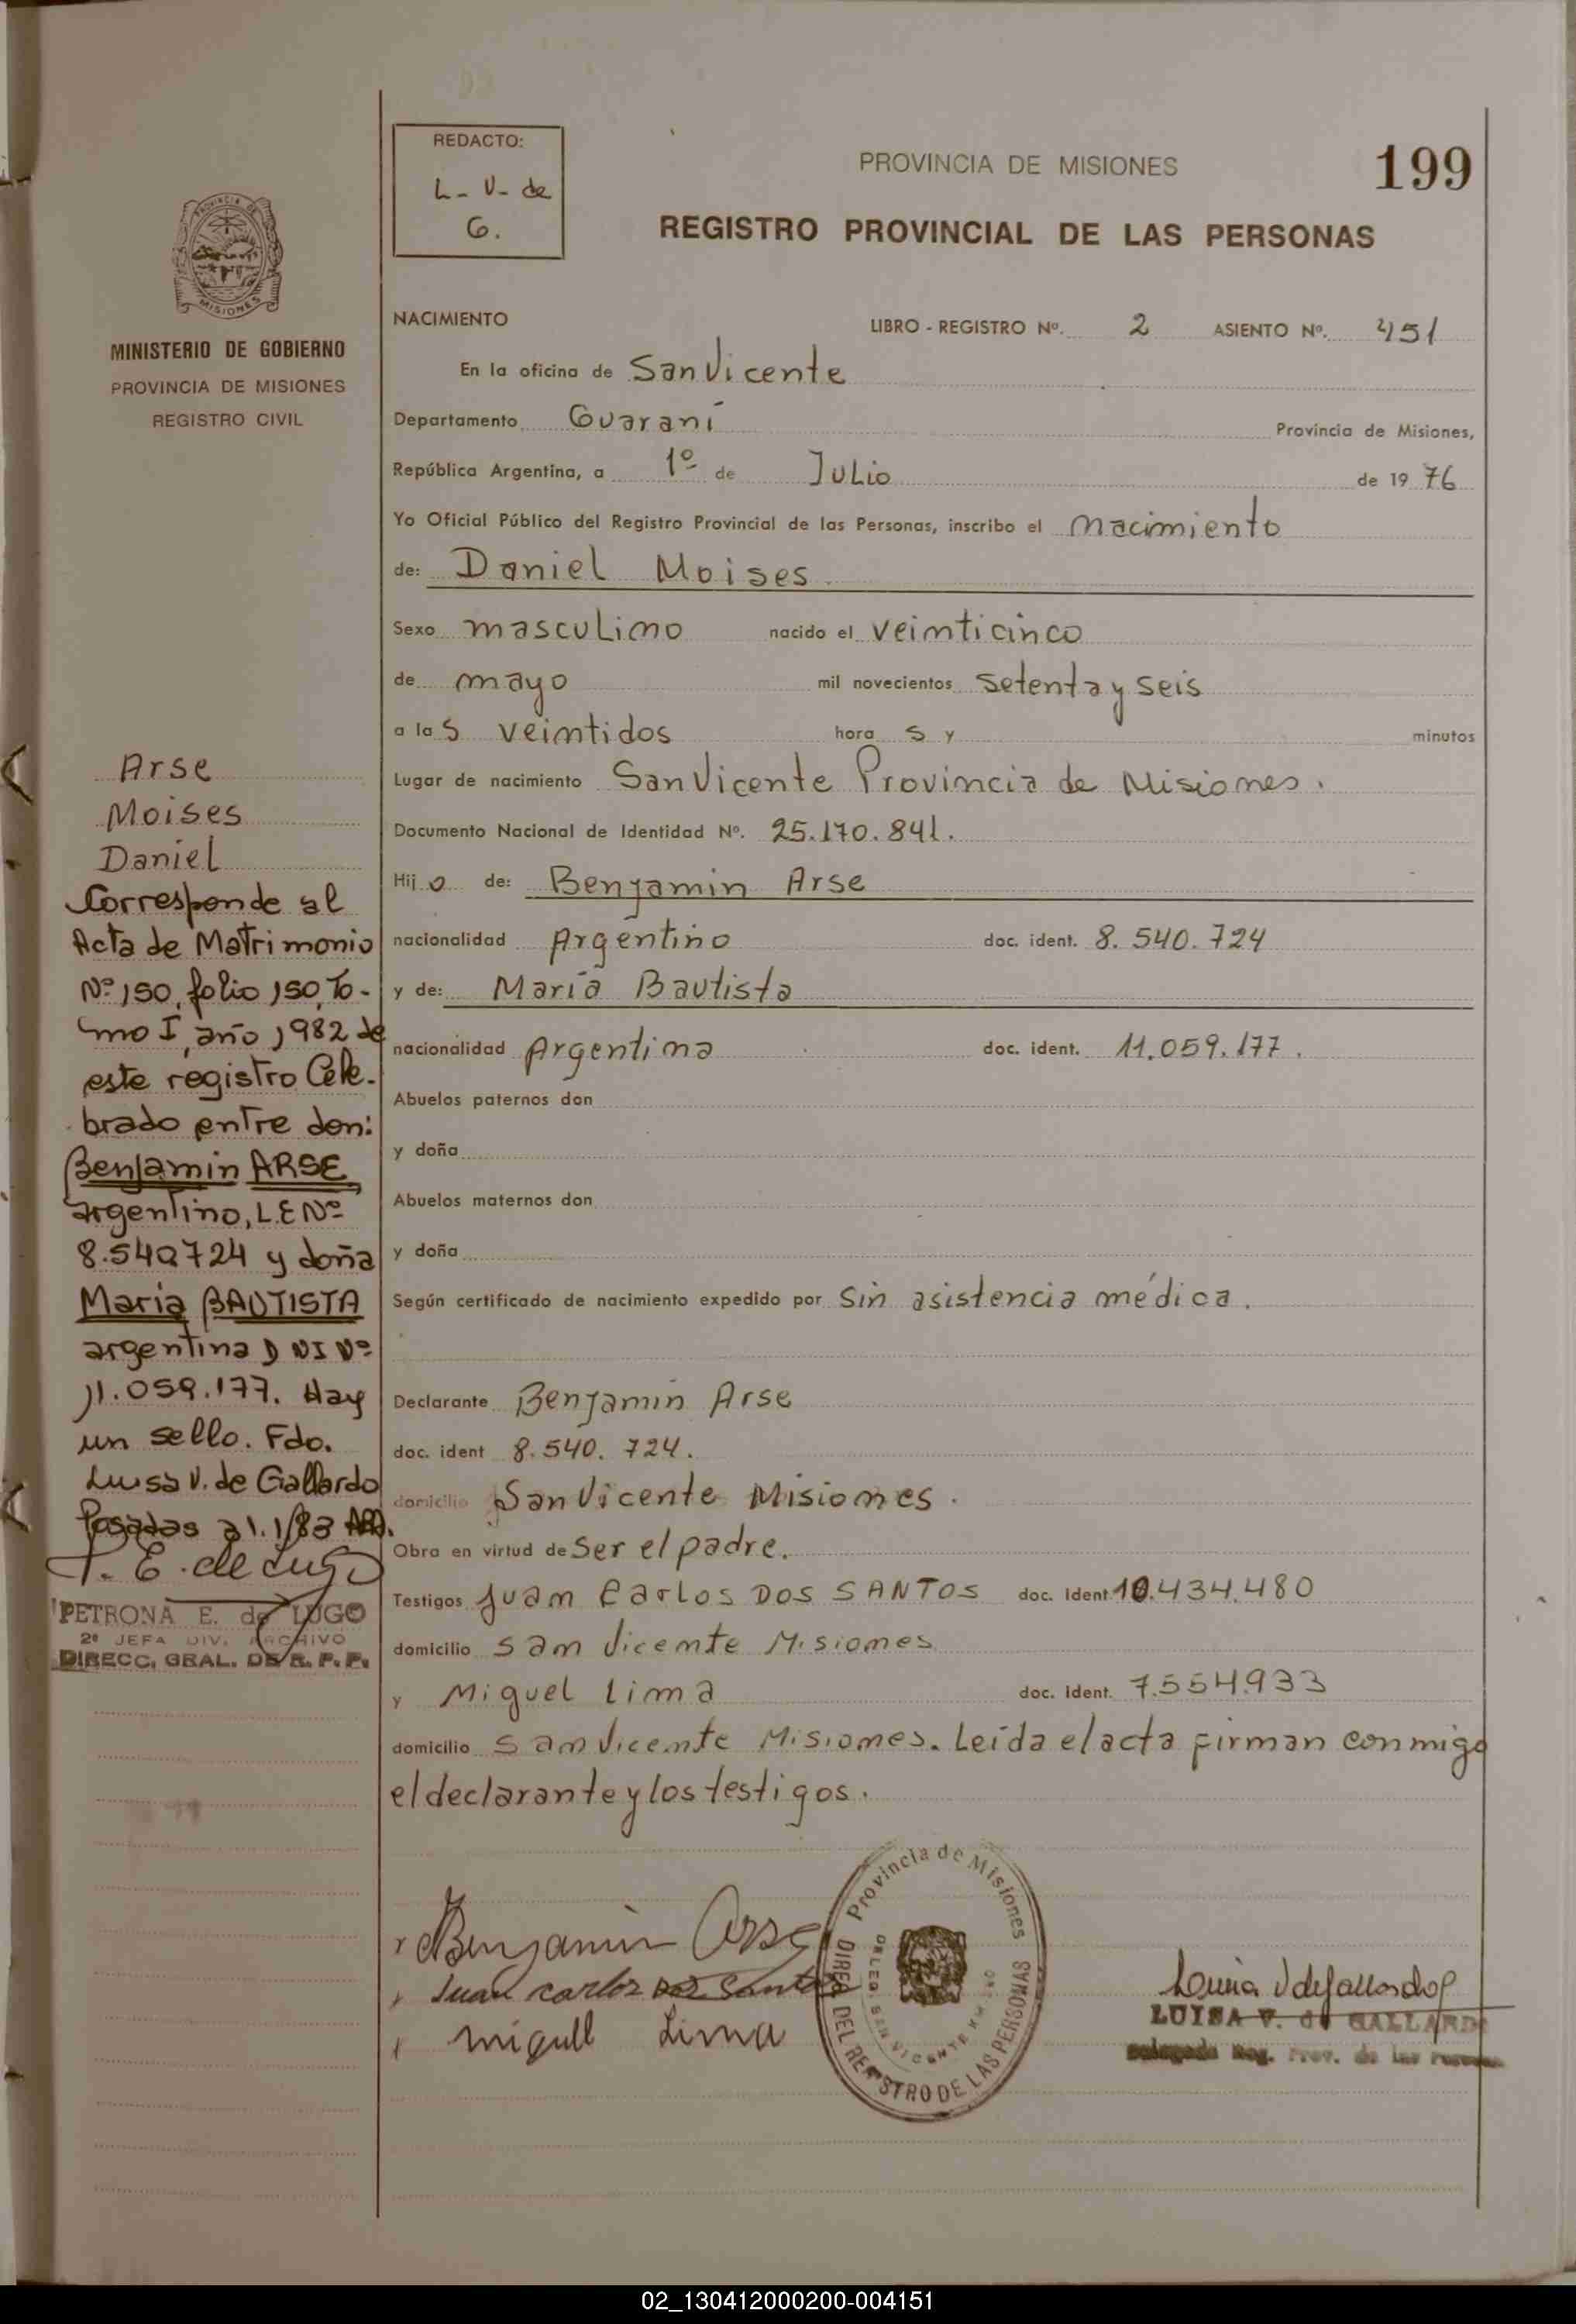 REDACTO:
L- V- de
G.
PROVINCIA DE MISIONES
199
REGISTRO PROVINCIAL DE LAS PERSONAS
PROVINCIA DE
MISIONES
MINISTERIO DE GOBIERNO
PROVINCIA DE MISIONES
REGISTRO CIVIL
NACIMIENTO LIBRO - REGISTRO Nº. 2 ASIENTO Nº. 451
En la oficina de San Vicente
Departamento Guaraní Provincia de Misiones,
República Argentina, a 1º de Julio de 19 76
Yo Oficial Público del Registro Provincial de las Personas, inscribo el nacimiento
de: Daniel Moises
Sexo masculino nacido el veinticinco
de mayo mil novecientos setenta y seis
a las veintidos hora s y minutos
Lugar de nacimiento San Vicente Provincia de Misiones.
Documento Nacional de Identidad Nº. 25.170.841.
Hijo de: Benjamin Arse
nacionalidad Argentino doc. ident. 8.540.724
y de: María Bautista
nacionalidad Argentina doc. ident. 11.059.177.
Abuelos paternos don
y doña
Abuelos maternos don
y doña
Según certificado de nacimiento expedido por Sin asistencia médica.
Declarante Benjamin Arse
doc. ident 8.540.724.
domicilio San Vicente Misiones.
Obra en virtud de Ser el padre.
Testigos Juan Carlos DOS SANTOS doc. Ident 10.434.480
domicilio San Vicente Misiones
y Miguel Lima doc. Ident. 7.554.933
domicilio San Vicente Misiones. Leída el acta firman conmigo
el declarante y los testigos.
Arse
Moises
Daniel
Corresponde al
Acta de Matrimonio
Nº 150, folio 150, To-
mo I, año 1982 de
este registro Cele-
brado entre don:
Benjamin ARSE
argentino, L.E Nº
8.540.724 y doña
Maria BAUTISTA
argentina D NI Nº
11.059.177. Hay
un sello. Fdo.
Luisa V. de Gallardo
Posadas 31.1/83
P. E. de Lugo
PETRONA E. de LUGO
2º JEFA DIV. ARCHIVO
DIRECC. GRAL. DE R. P. P.
Benjamin Arse
Juan carlos Dos Santos
miguel Lima
Provincia de Misiones
DIREC. DEL REGISTRO DE LAS PERSONAS
DELEG. SAN VICENTE
Luisa V de Gallardo
LUISA V. de GALLARDO
Delegada Reg. Prov. de las Personas
02_130412000200-004151